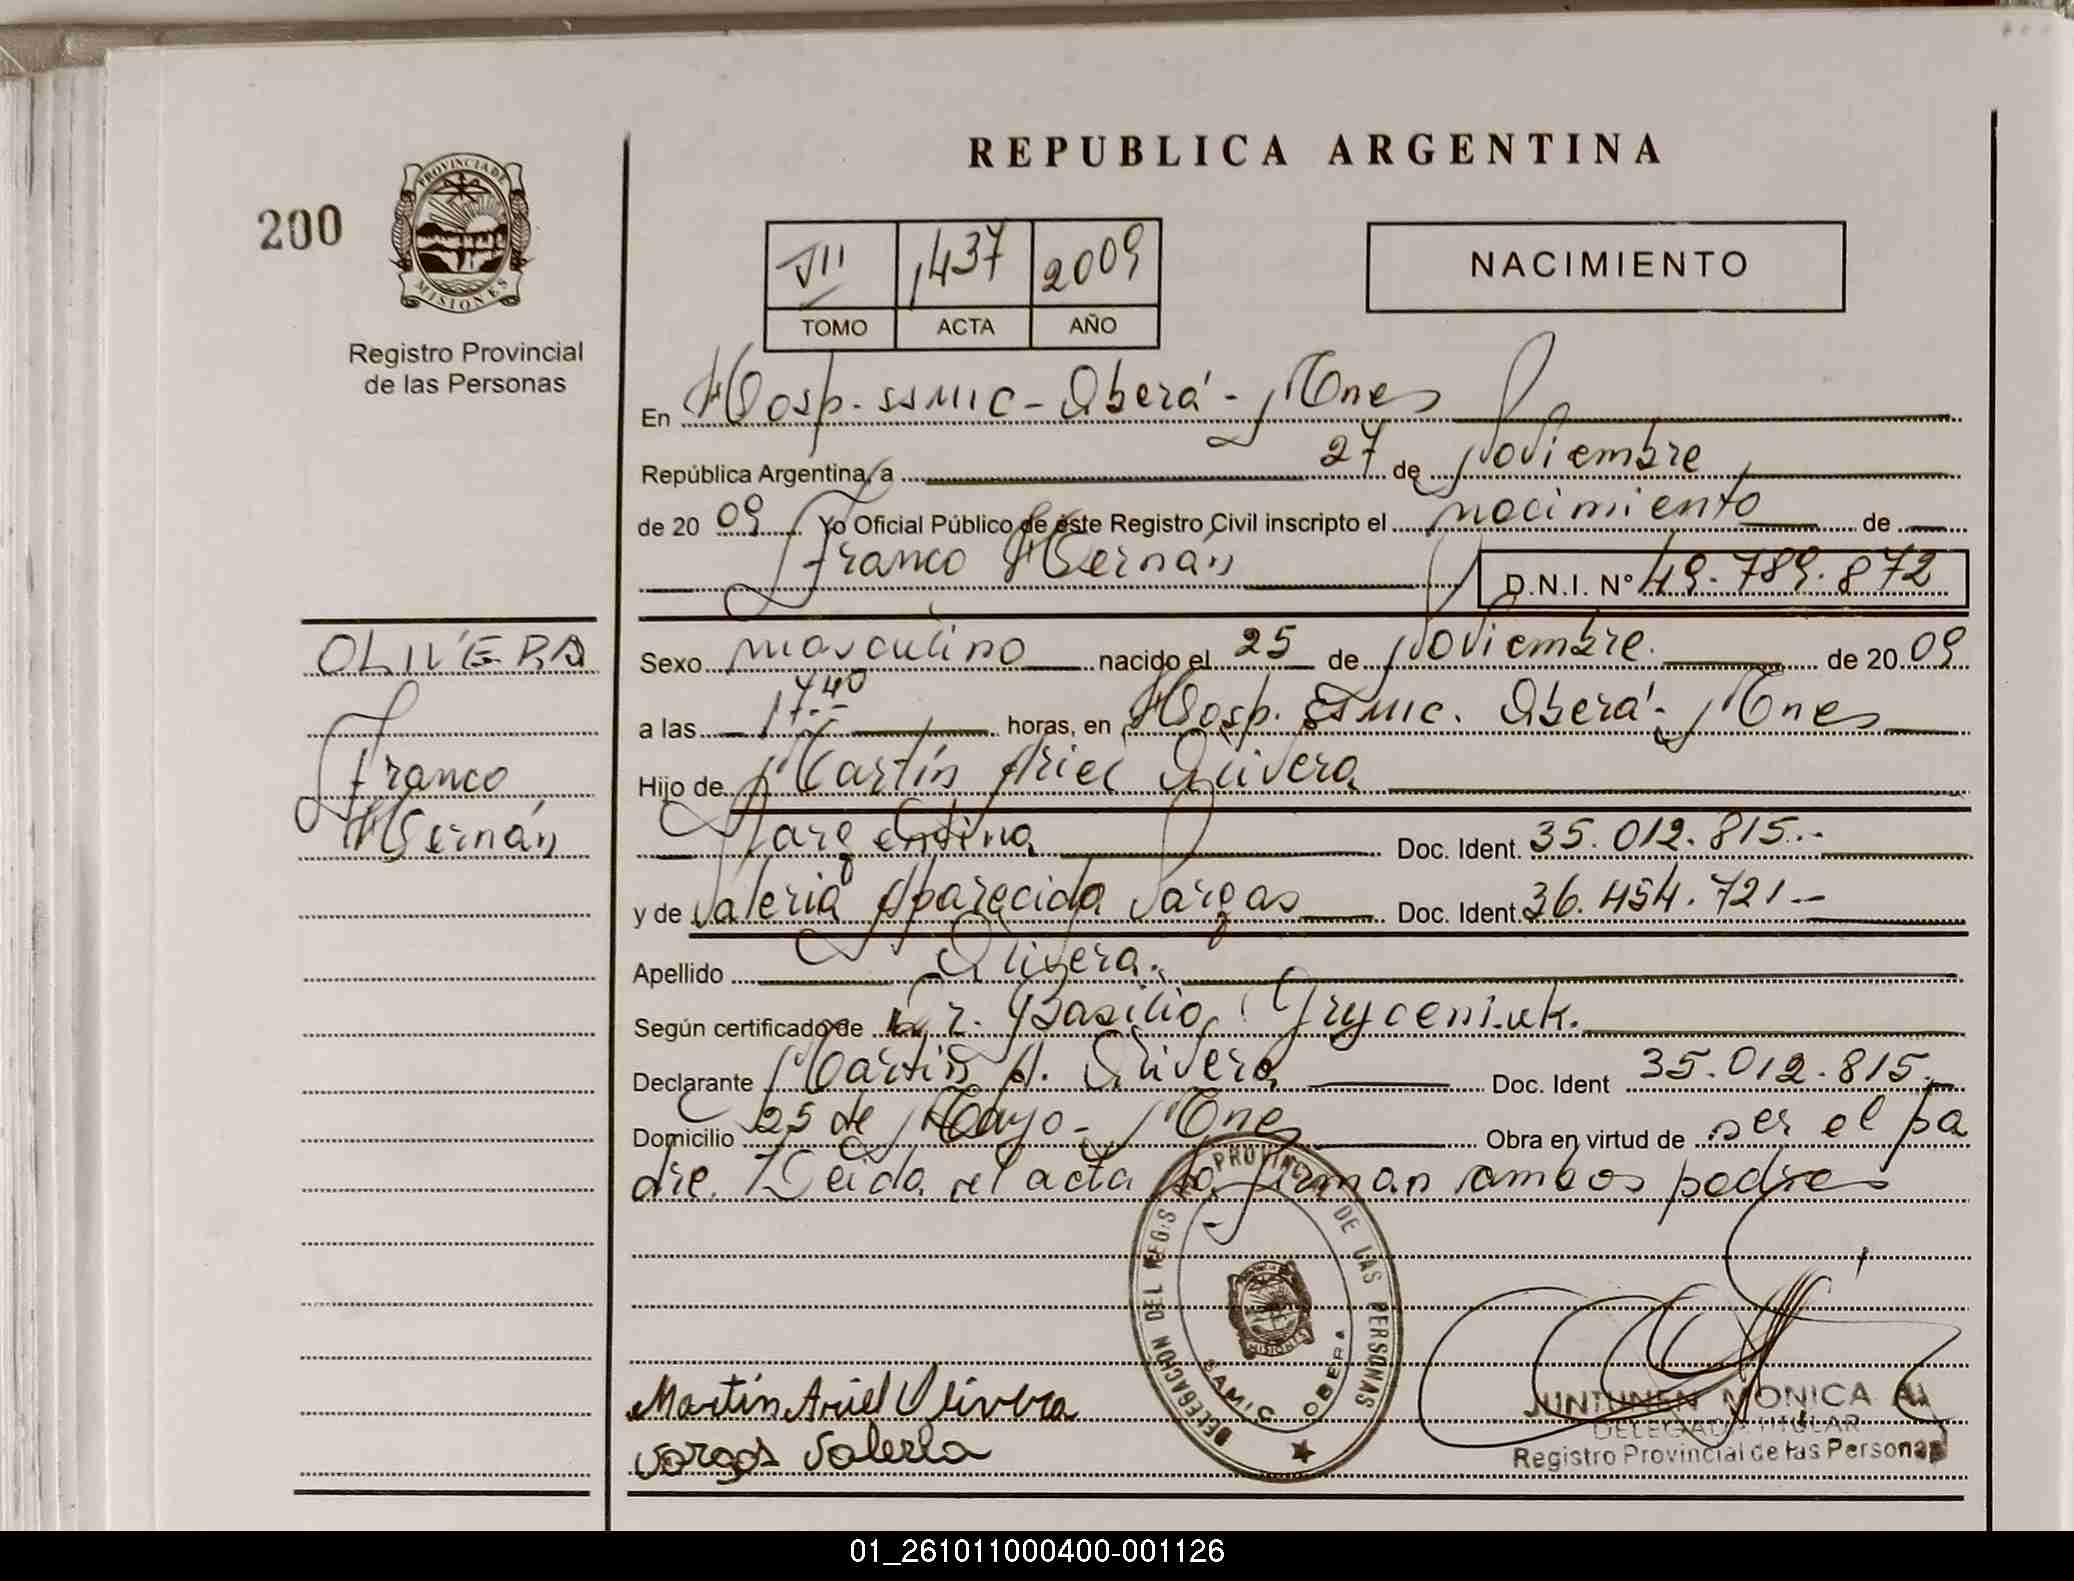 REPUBLICA ARGENTINA
200
PROVINCIA DE
MISIONES
Registro Provincial
de las Personas
VII 1437 2009
TOMO ACTA AÑO
NACIMIENTO
En Hosp. SAMIC - Oberá - Mnes
República Argentina, a 27 de Noviembre
de 2009 Yo Oficial Público de este Registro Civil inscripto el nacimiento de
Franco Hernán D.N.I. Nº 49.789.872
OLIVERA
Franco
Hernán
Sexo masculino nacido el 25 de Noviembre. de 2009
a las 17.40 horas, en Hosp. SAMIC. Oberá - Mnes
Hijo de Martín Ariel Olivera
argentina Doc. Ident. 35.012.815.-
y de Valeria Aparecida Vargas Doc. Ident. 36.454.721.-
Apellido Olivera.
Según certificado de Dr. Basilio Gryceniuk.
Declarante Martín A. Olivera Doc. Ident 35.012.815.-
Domicilio 25 de Mayo - Mnes Obra en virtud de ser el pa
dre. Leida el acta la firman ambos padres
DELEGACION DEL REGIS PROVINC DE LAS PERSONAS
MISIONES
SAMIC OBERA
Martín Ariel Olivera
Vargas Valeria
JUNTUNEN MONICA A.
DELEGADA TITULAR
Registro Provincial de las Personas
01_261011000400-001126